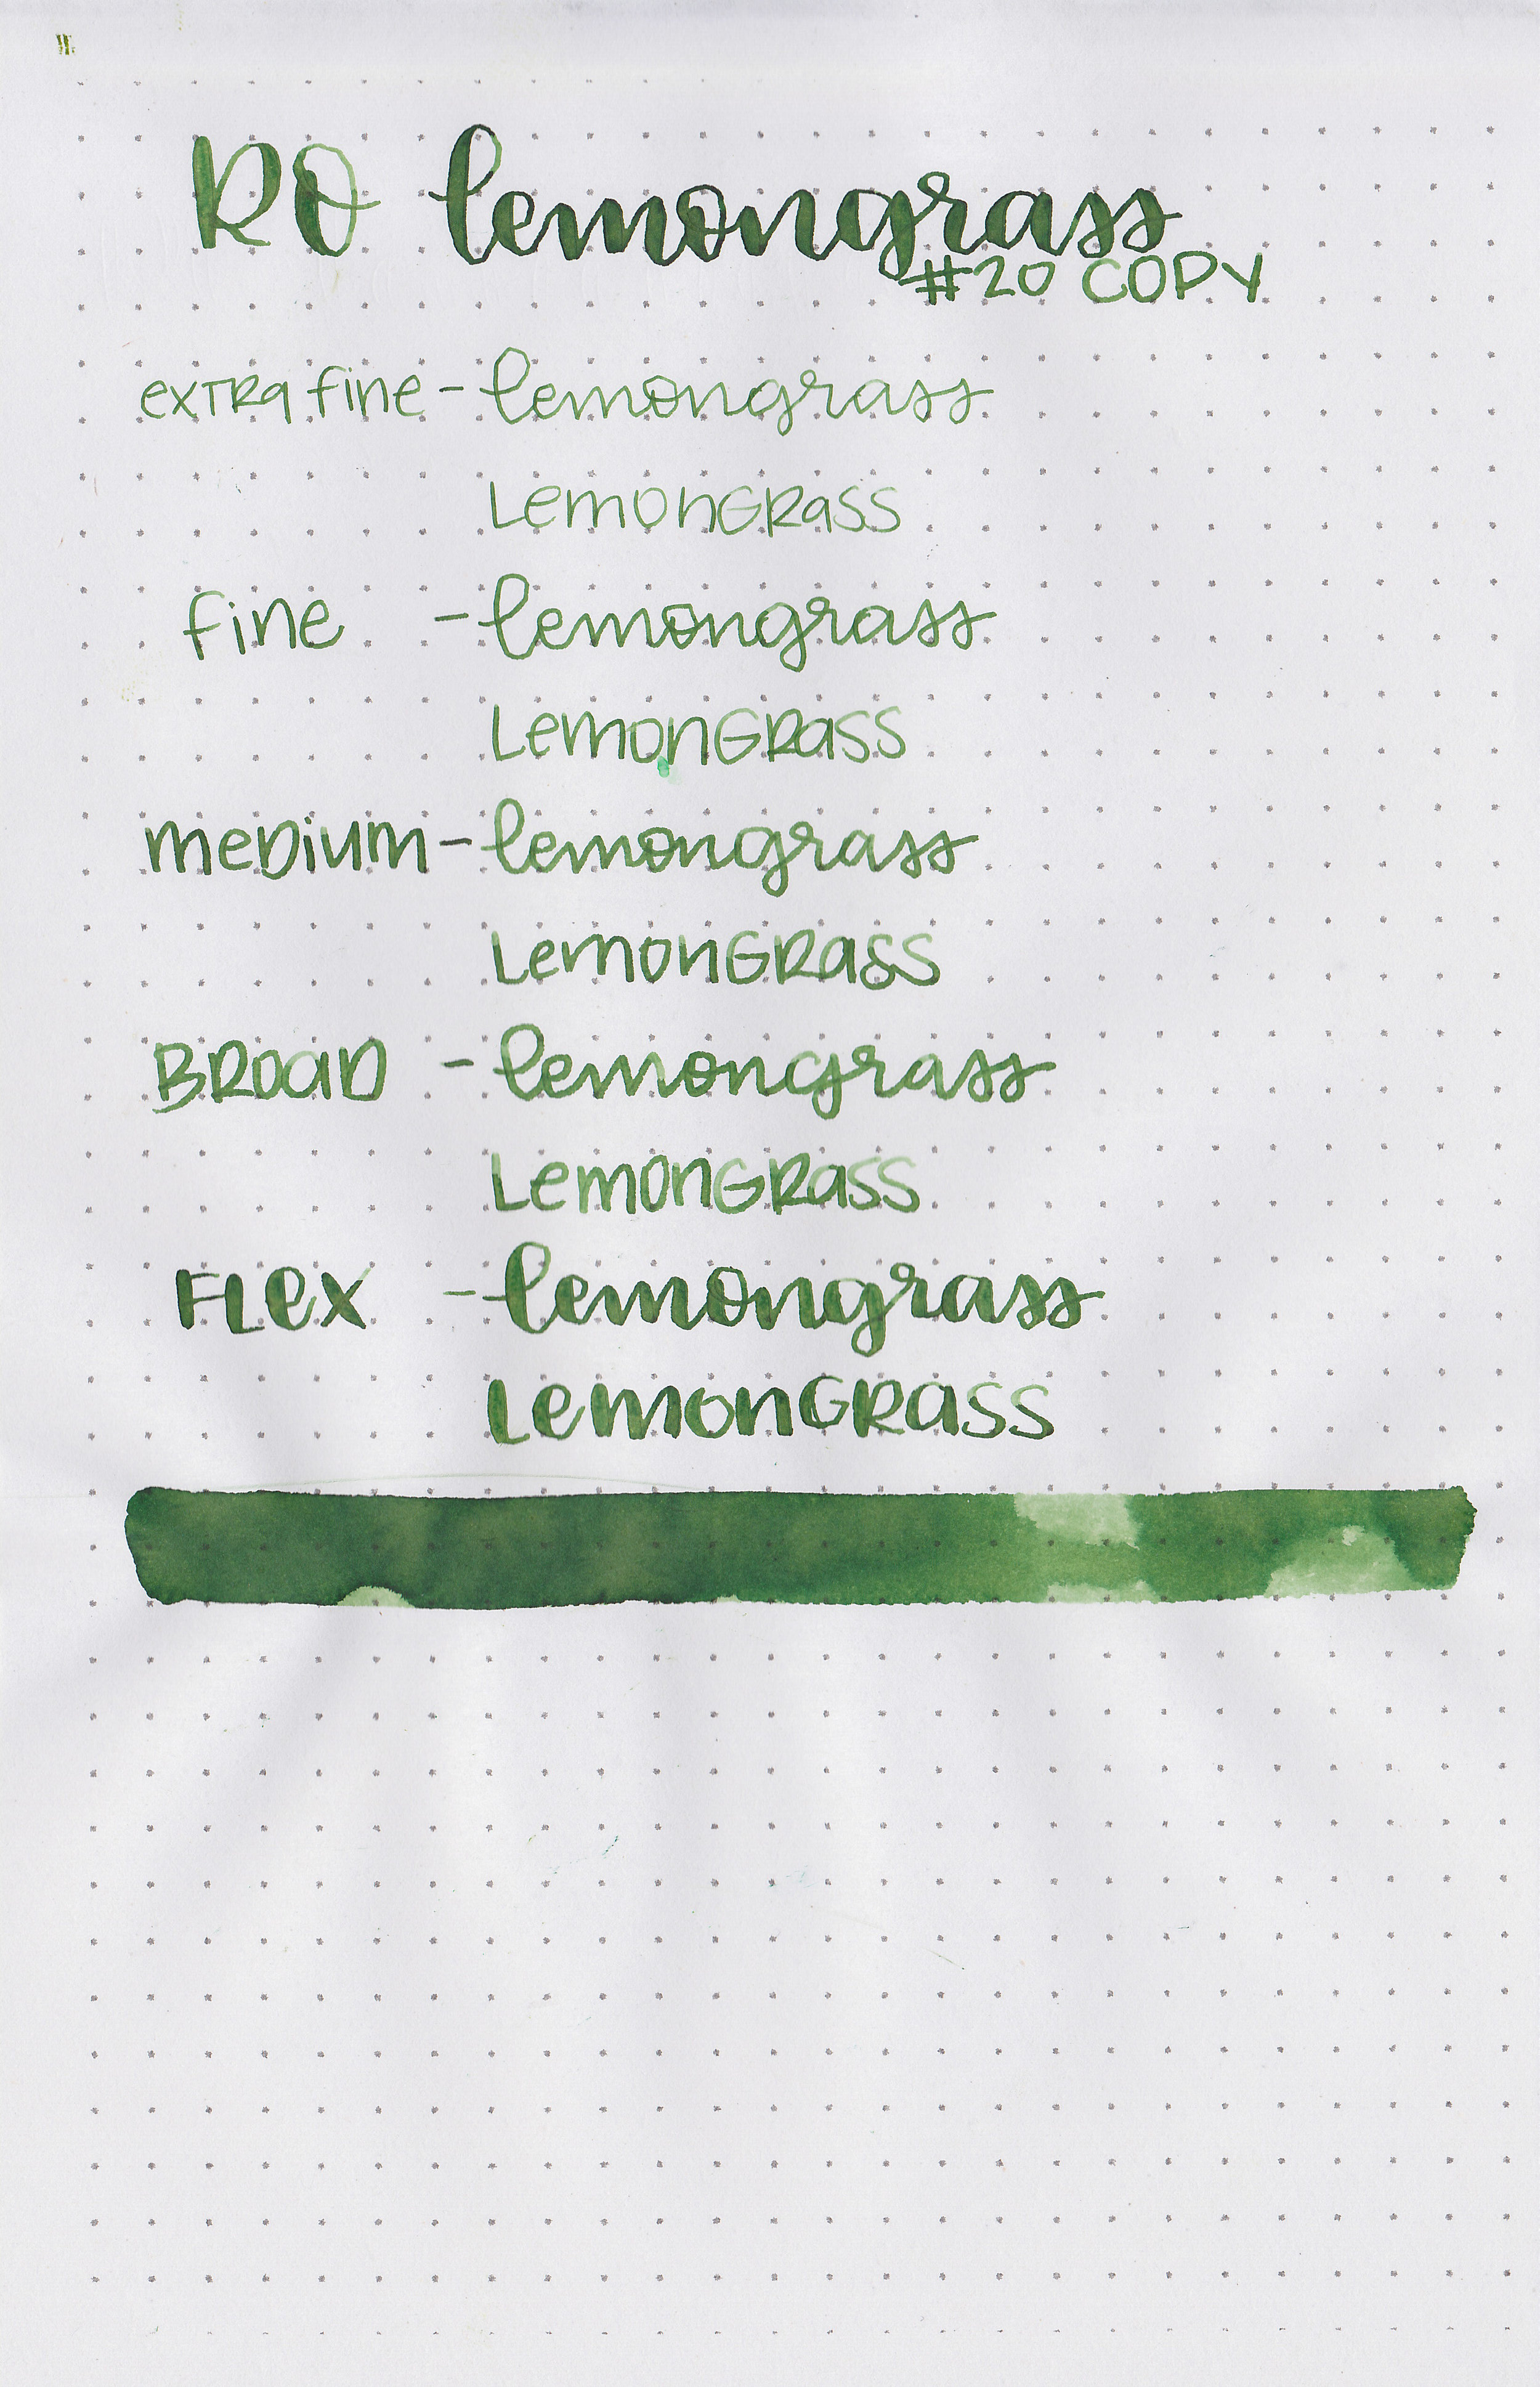 RO lemongrass
#20 COPY
extra fine - lemongrass
LemonGRass
fine - lemongrass
LemonGRass
meDium - lemongrass
LemonGRass
BROaD - lemongrass
LemonGRass
FLex - lemongrass
LemonGRass